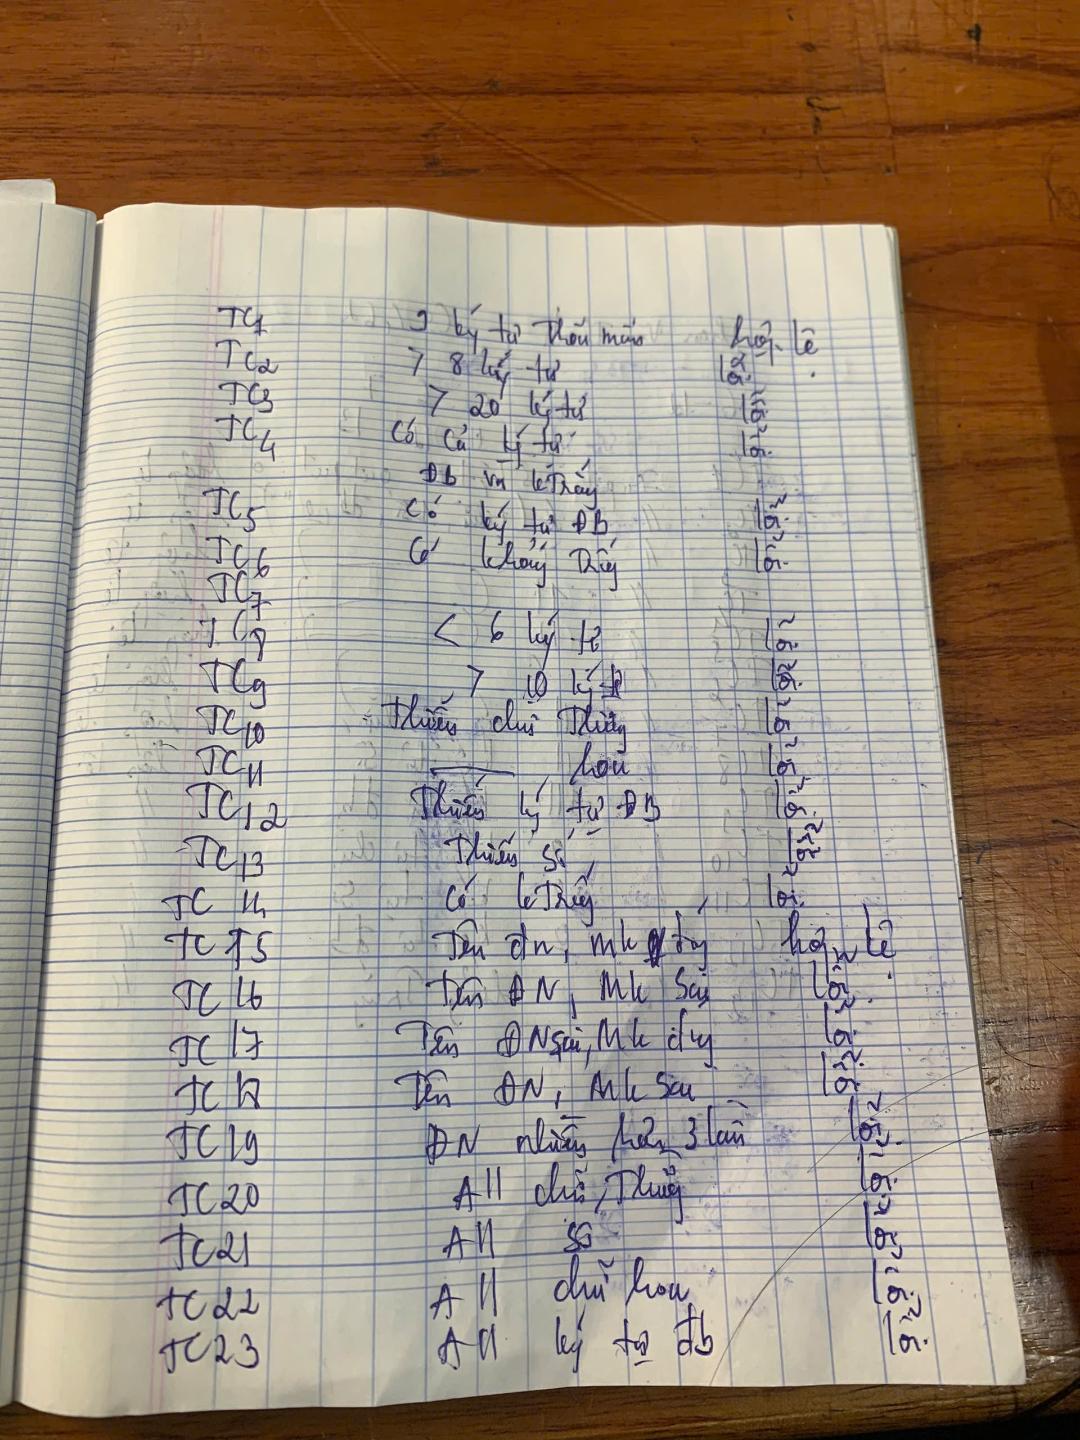 TC1 9 ký tự thỏa mãn hợp lệ
TC2 > 8 ký tự lỗi
TC3 > 20 ký tự lỗi
TC4 Có cả ký tự lỗi
ĐB và k trắng
TC5 Có ký tự ĐB lỗi
TC6 Có khoảng trắng lỗi
TC7
TC8 < 6 ký tự lỗi
TC9 > 10 ký tự lỗi
TC10 Thiếu chữ thường lỗi
TC11 —— hoa lỗi
TC12 Thiếu ký tự ĐB lỗi
TC13 Thiếu số lỗi
TC 14 Có k trắng lỗi
TC 15 Tên đn, mk đúng hợp lệ
TC 16 Tên ĐN, Mk Sai lỗi
TC 17 Tên ĐN sai, Mk đúng lỗi
TC 18 Tên ĐN, Mk Sai lỗi
TC19 ĐN nhiều hơn 3 lần lỗi
TC20 All chữ thường lỗi
TC21 All số lỗi
TC22 All chữ hoa lỗi
TC23 All ký tự đb lỗi